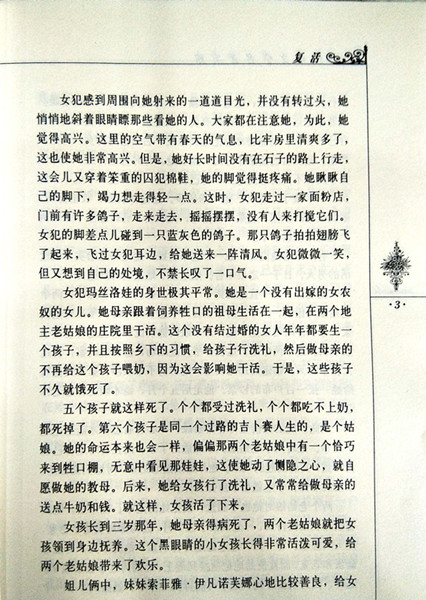 复活
女犯感到周围向她射来的一道道目光，并没有转过头，她
悄悄地斜着眼睛瞟那些看她的人。大家都在注意她，为此，她
觉得高兴。这里的空气带有春天的气息，比牢房里清爽多了，
这也使她非常高兴。但是，她好长时间没有在石子的路上行走，
这会儿又穿着笨重的囚犯棉鞋，她的脚觉得挺疼痛。她瞅瞅自
己的脚下，竭力想走得轻一点。这时，女犯走过一家面粉店，
门前有许多鸽子，走来走去，摇摇摆摆，没有人来打搅它们。
女犯的脚差点儿碰到一只蓝灰色的鸽子。那只鸽子拍拍翅膀飞
了起来，飞过女犯耳边，给她送来一阵清风。女犯微微一笑，
但又想到自己的处境，不禁长叹了一口气。
女犯玛丝洛娃的身世极其平常。她是一个没有出嫁的女农
奴的女儿。她母亲跟着饲养牲口的祖母生活在一起，在两个地
主老姑娘的庄院里干活。这个没有结过婚的女人年年都要生一
个孩子，并且按照乡下的习惯，给孩子行洗礼，然后做母亲的
不再给这个孩子喂奶，因为这会影响她干活。于是，这些孩子
不久就饿死了。
五个孩子就这样死了。个个都受过洗礼，个个都吃不上奶，
都死掉了。第六个孩子是同一个过路的吉卜赛人生的，是个姑
娘。她的命运本来也会一样，偏偏那两个老姑娘中有一个恰巧
来到牲口棚，无意中看见那娃娃，这使她动了恻隐之心，就自
愿做她的教母。后来，她给女孩行了洗礼，又常常给做母亲的
送点牛奶和钱。就这样，女孩活了下来。
女孩长到三岁那年，她母亲得病死了，两个老姑娘就把女
孩领到身边抚养。这个黑眼睛的小女孩长得非常活泼可爱，给
两个老姑娘带来了欢乐。
姐儿俩中，妹妹索菲雅·伊凡诺芙娜心地比较善良，给女
·3·